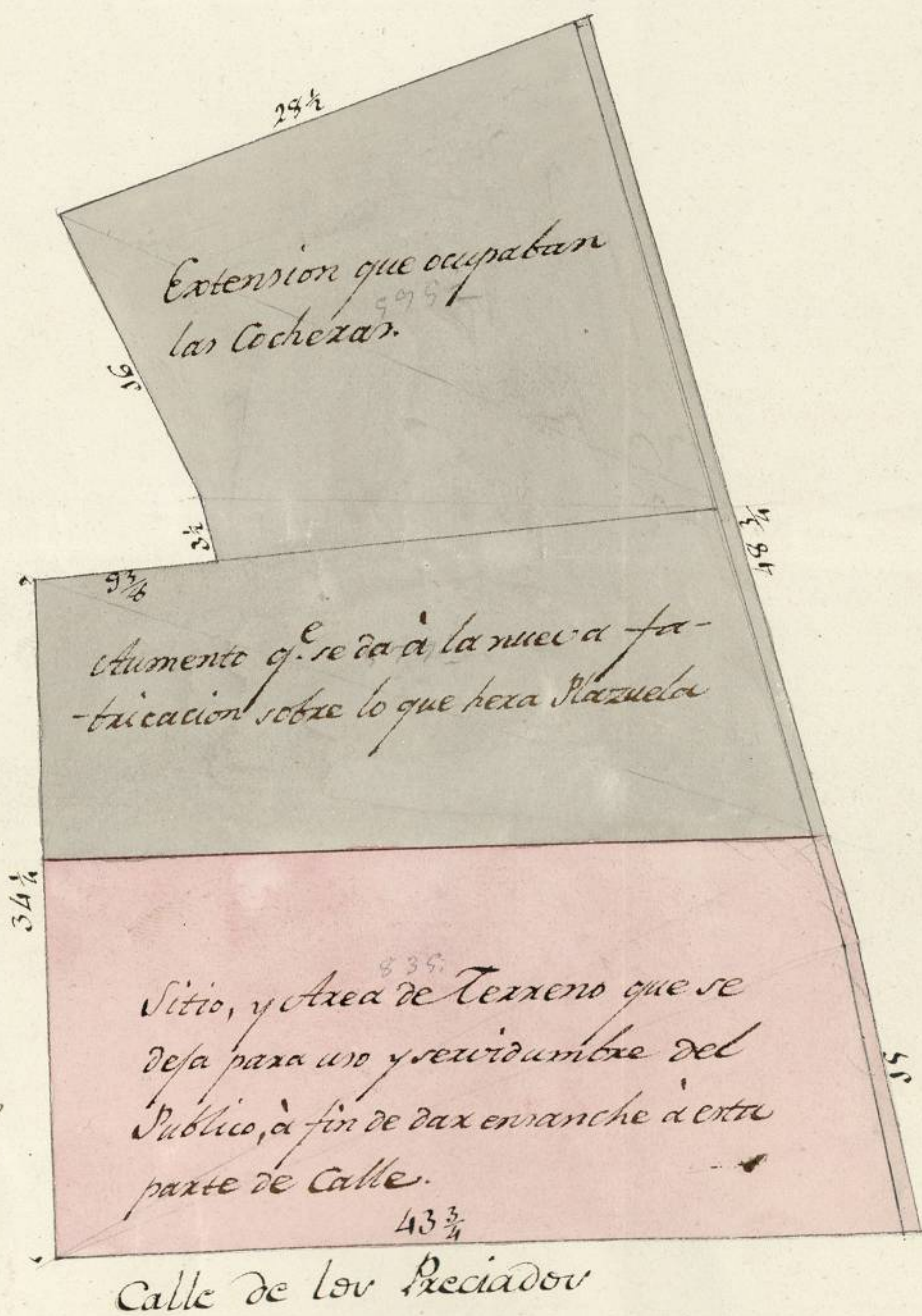 28½
Extension que ocupaban
las Cocheras.
16
3½
9¾
48¾
Aumento q.e se da à la nueva fa-
-bricacion sobre lo que hera Plazuela
34¼
835.
Sitio, y Area de Terreno que se
deja para uso y servidumbre del
Publico, à fin de dar ensanche à esta
parte de Calle.
15
43¾
Calle de los Preciados